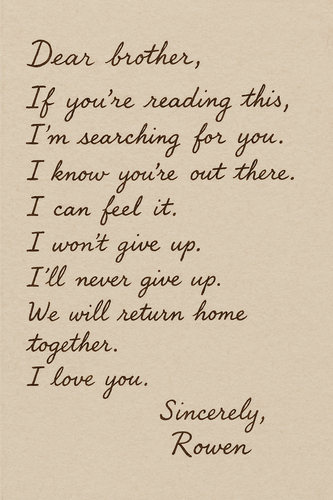 Dear brother,
If you're reading this,
I'm searching for you.
I know you're out there.
I can feel it.
I won't give up.
I'll never give up.
We will return home
together.
I love you.
Sincerely,
Rowen